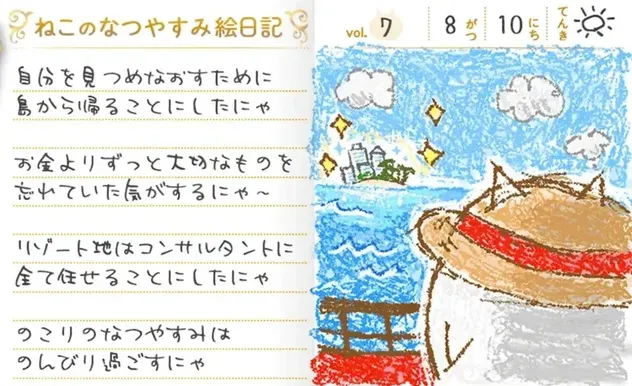 ねこのなつやすみ絵日記
vol. 7
8がつ
10にち
てんき
自分を見つめなおすために
島から帰ることにしたにゃ
お金よりずっと大切なものを
忘れていた気がするにゃ～
リゾート地はコンサルタントに
全て任せることにしたにゃ
のこりのなつやすみは
のんびり過ごすにゃ